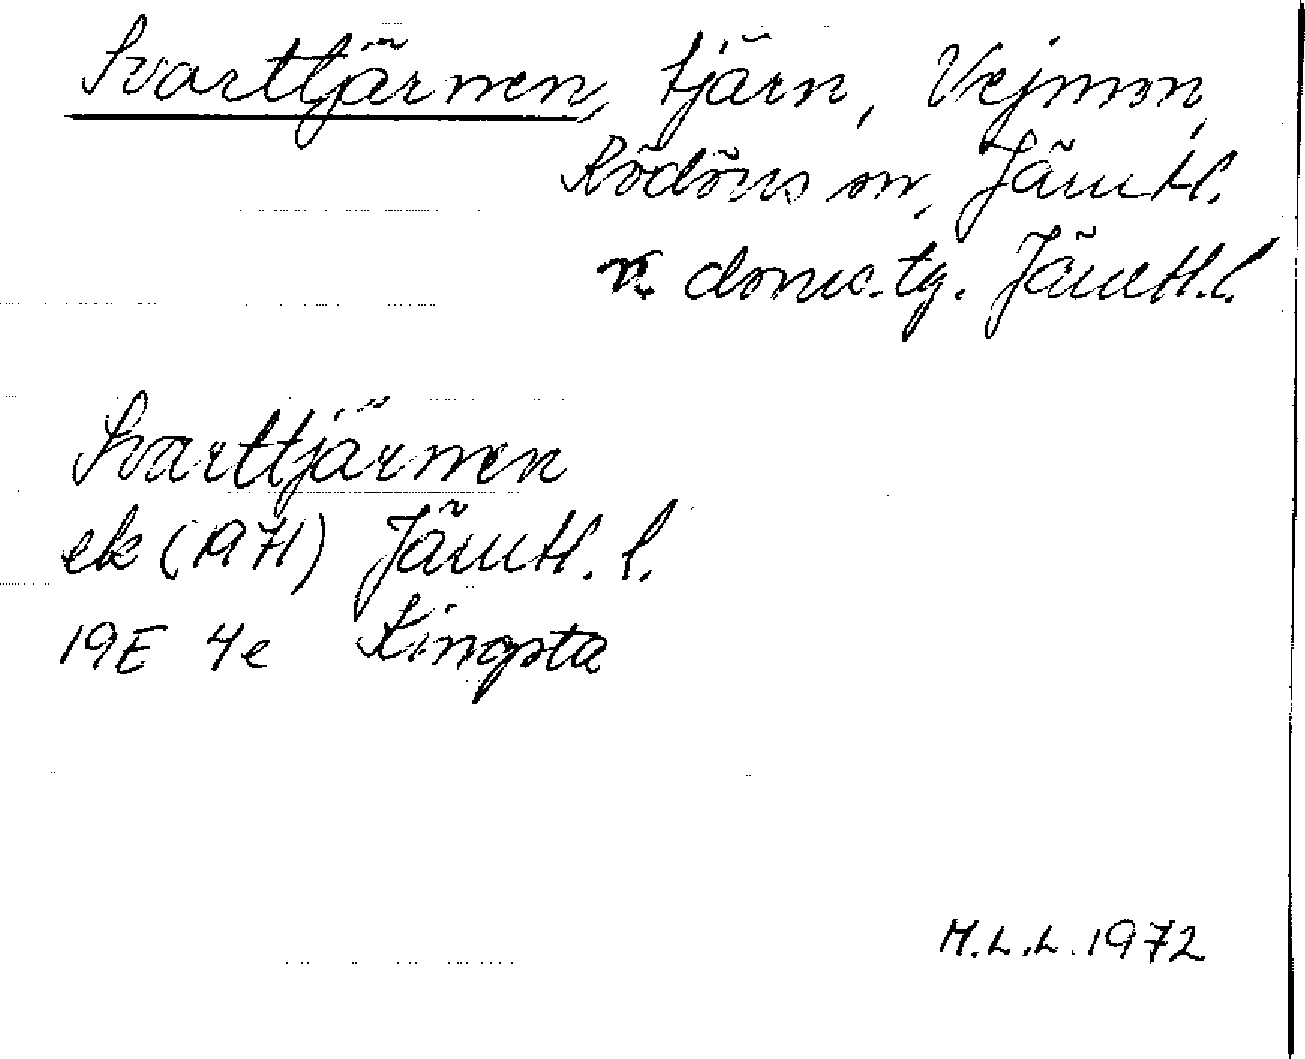 Svarttjärnen, tjärn, Vejmon,
Rödöns sn, Jämtl.
n. doms.tg. Jämtl.l.
Svarttjärnen
ek (1971) Jämtl. l.
19E 4e Kingsta
M.L.L. 1972